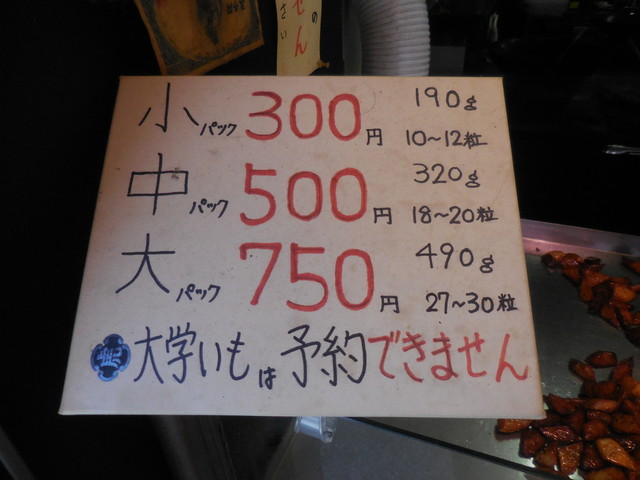 小パック 300円 190g
10～12粒
中パック 500円 320g
18～20粒
大パック 750円 490g
27～30粒
虎 大学いもは予約できません